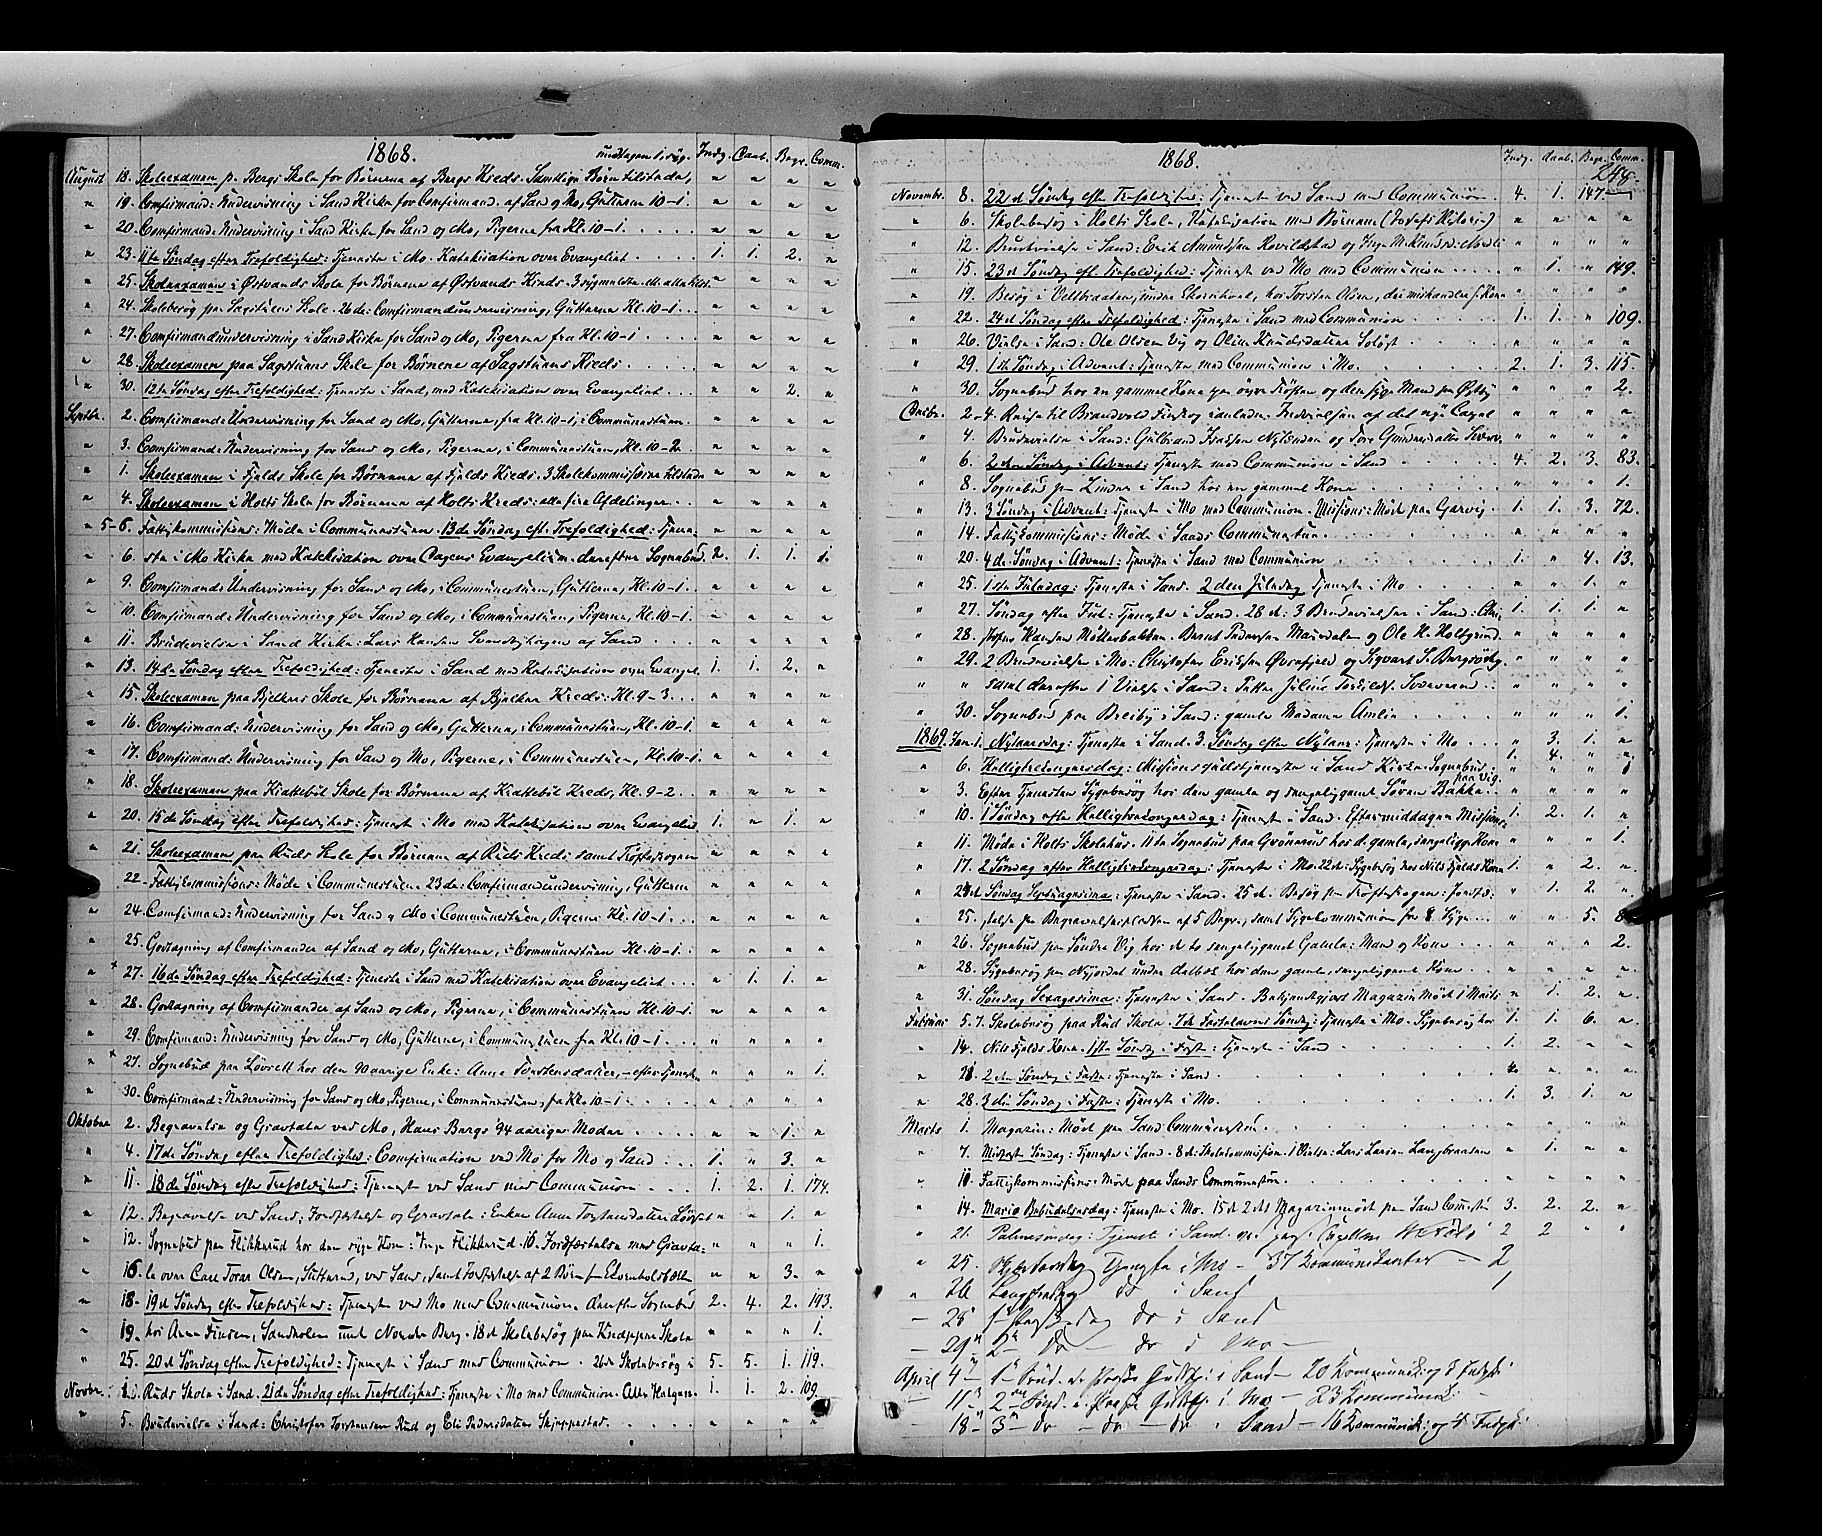 1868. undtagen 1, syg. Indg. Daab. Begr. Comm.
August 18. Skoleexamen p. Bergs Skole for Børnene af Bergs Kreds. Samtlige Børn tilstede, " " " "
" 19. Comfirmand: Undervisning i Sand Kirke for Comfirmand. af Sand og Mo, Gutterne 10-1. " " " "
" 20. Comfirmand: Undervisning i Sand Kirke for Sand og Mo, Pigerne fra Kl. 10-1. " " " "
" 23. 11te Søndag efter Trefoldighed: Tjeneste i Mo. Katekisation over Evangeliet 1. 1. 2. "
" 25. Skoleexamen i Østvands Skole for Børnene af Østvands Kreds. " " " "
" 24. Skolebesøg paa Sagstuens Skole. 26de: Comfirmandundervisning, Gutterne Kl. 10-1. " " " "
" 27. Comfirmandundervisning i Sand Kirke for Sand og Mo, Pigerne fra Kl. 10-1 " " " "
" 28. Skoleexamen paa Sagstuens Skole for Børnene af Sagstuens Kreds " " " "
" 30. 12te Søndag efter Trefoldighed: Tjeneste i Sand, med Katekisation over Evangeliet " " 2. "
Septbr. 2. Comfirmand: Undervisning for Sand og Mo, Gutterne, fra Kl. 10-1, i Communestuen. " " " "
" 3. Comfirmand: Undervisning for Sand og Mo, Pigerne, i Communestuen, Kl. 10-2. " " " "
" 1. Skoleexamen i Fjelds Skole for Børnene af Fjelds Kreds. 3 Skolekommissærer tilstede " " " "
" 4. Skoleexamen i Holts Skole for Børnene af Holts Kreds: alle fire Afdelinger. " " " "
" 5-6. Fattigkommissions: Møde i Communestuen. 13de Søndag eft. Trefoldighed: Tjene- " " " "
" 6. ste i Mo Kirke med Katekisation over Dagens Evangelium. derefter Sognebud. 2. 1. 1. 1.
" 9. Comfirmand: Undervisning for Sand og Mo, i Communestuen, Gutterne, Kl. 10-1. " " " "
" 10. Comfirmand: Undervisning for Sand og Mo, i Communestuen, Pigerne, Kl. 10-1. " " " "
" 11. Brudevielse i Sand Kirke: Lars Hansen Svenskehagen af Sand " " " "
" 13. 14de Søndag efter Trefoldighed: Tjeneste i Sand med Katekisation over Evangel. 1. 1. 2. "
" 15. Skoleexamen paa Bjelkes Skole for Børnene af Bjelkes Kreds: Kl. 9-3 " " " "
" 16. Comfirmand: Undervisning for Sand og Mo, Gutterne, i Communestuen, Kl. 10-1. " " " "
" 17. Comfirmand: Undervisning for Sand og Mo, Pigerne, i Communestuen, Kl. 10-1. " " " "
" 18. Skoleexamen paa Kiattebøl Skole for Børnene af Kiattebøl Kreds, Kl. 9-2 " " " "
" 20. 15de Søndag efter Trefoldighed: Tjeneste i Mo med Katekisation over Evangeliet 1. " 1. "
" 21. Skoleexamen paa Ruds Skole for Børnene af Ruds Kreds samt Trøfteskogen " " " "
" 22. Fattigkommissions: Møde i Communestuen. 23de: Comfirmandundervisning, Gutterne " " " "
" 24. Comfirmand: Undervisning for Sand og Mo i Communestuen, Pigerne Kl. 10-1. " " " "
" 25. Godtagning af Comfirmander af Sand og Mo, Gutterne, i Communestuen Kl. 10-1. " " " "
" 27. 16de Søndag efter Trefoldighed: Tjeneste i Sand med Katekisation over Evangeliet " 1. 1. "
" 28. Godtagning af Comfirmander af Sand og Mo, Pigerne, i Communestuen Kl. 10-1. " " " "
" 29. Comfirmand: Undervisning for Sand og Mo, Gutterne, i Communestuen fra Kl. 10-1 " " " "
" 27. Sognebud paa Lövsett hos den 90aarige Enke: Anne Torstensdatter, - efter Tjenesten " " " 1.
" 30. Comfirmand: Undervisning for Sand og Mo, Pigerne, i Communestuen, fra Kl. 10-1. " " " "
Oktober 2. Begravelse og Gravtale ved Mo, Hans Bergs 94 aarige Moder " " 1. "
" 4. 17de Søndag efter Trefoldighed: Comfirmation ved Mo for Mo og Sand 1. " 3. "
" 11. 18de Søndag efter Trefoldighed: Tjeneste ved Sand med Communion 1. 2. 1. 174.
" 12. Begravelse ved Sand; Jordfæstelse og Gravtale: Enken Anne Torstensdatter Lövset " " 1. "
" 12. Sognebud paa Flikkerud hos den syge Kone: Inge Flikkerud. 16. Jordfæstelse med Gravta- " " " 1.
" 16. le over Carl Torer Olsen, Sætterud, ved Sand, samt Jordfæstelse af 2 Børn " " 3. "
" 18. 19de Søndag efter Trefoldighed: Tjeneste ved Mo med Communion. derefter Sognebud 2. 4. 2. 193.
" 19. hos Anne Finsen, Sandholen unt. Nordre Berg. 18de Skolebesøg paa Knappens Skole " " " 1.
" 25. 20de Søndag efter Trefoldighed: Tjeneste i Sand med Communion. 26de Skolebesøg i 5. 5. 1. 119.
Novbr. 1. Ruds Skole i Sand. 21de Søndag efter Trefoldighed: Tjeneste i Mo med Communion. Alle Helgens. 1. 1. 2. 109.
" 5. Brudevielse i Sand: Christofer Torstensen Rud og Eli Pedersdatter Skjeppestad. " " " "
1868. Indg. Daab. Begr. Comm.
244.
Novembr. 8. 22de Søndag efter Trefoldighed: Tjeneste ved Sand med Communion 4. 1. 147.
" 6. Skolebesøg i Holts Skole, Katekisation med Børnene (Josefs Historie) " " " "
" 12. Brudevielse i Sand: Erik Amundsen Kovildstad og Inge " " " "
" 15. 23de Søndag eft. Trefoldighed: Tjeneste ved Mo med Communion " 1. " 149.
" 19. Besøg i Veltbraaten, under Skoreihol, hos Torsten Olsen, der mishandler s. Kone " " " "
" 22. 24de Søndag efter Trefoldighed: Tjeneste i Sand med Communion 1. 1. " 109.
" 26. Vielse i Sand: Ole Olsen Vig og Oline Knudsdatter " " " "
" 29. 1ste Søndag i Advent: Tjeneste med Communion i Mo. 2. 1. 3. 115.
" 30. Sognebud hos en gammel Kone paa øvre Trøften og den syge Mand paa Østby " " " 2.
Decbr. 2-4. Reise til Brandvold Finskog i anledn. Indvielsen af det nye Capel " " " "
" 4. Brudevielse i Sand: Gulbrand Isaksen Nylænden og Tore Gundersdatter " " " "
" 6. 2den Søndag i Advent: Tjeneste med Communion i Sand 4. 2. 3. 83.
" 8. Sognebud paa Linder i Sand hos en gammel Kone " " " 1.
" 13. 3 Søndag i Advent: Tjeneste i Mo med Communion. Missions: Møde paa Garvig. 1. 1. 3. 72.
" 14. Fattigkommissions: Møde i Sands Communestue. " " " "
" 20. 4de Søndag i Advent: Tjeneste i Sand med Communion 1. " 4. 13.
" 25. 1ste Juledag: Tjeneste i Sand. 2den Juledag Tjeneste i Mo " " 1. "
" 27. Søndag efter Jul: Tjeneste i Sand. 28de: 3 Brudevielser i Sand: Chri- 1. 1. 1. "
" 28. stofer Hansen Møllerbakken. Bernt Pedersen Mausdalen og Ole H. Holtgrind. " " " "
" 29. 2 Brudevielser i Mo: Christofer Eriksen Øvrefjeld og Sigvart S. Bergsødeg. " " " "
" " samt derefter 1 Vielse i Sand: Petter Julius " " " "
" 30. Sognebud paa Breiby i Sand: gamle Madame Amlie " " " 1.
1869. Jan. 1. Nytaarsdag: Tjeneste i Sand. 3. Søndag efter Nytaar: Tjeneste i Mo " 3. 1. "
1. 4. " "
" 6. Helligtrekongersdag: Missionsgudstjeneste i Sand Kirke. Sognebud: paa Vig. " " " 1
" 3. Efter Tjenesten Sygebesøg hos den gamle og sengeliggende Søren Bakke. " " " "
" 10. 1 Søndag efter Helligtrekongersdag: Tjeneste i Sand. Eftermiddagen Missions- 1. 2. 1. "
" 11. Møde i Holts Skolehus. 11te Sognebud paa Grönerud hos d. gamle, sengeligge Kone " " " 1.
" 17. 2 Søndag efter Helligtrekongersdag: Tjeneste i Mo. 22de: Sygebesøg hos Nils Fjelds Kone 1. " 2. "
" 24de Søndag Septuagesima: Tjeneste i Sand. 25de. Besøg paa Trøfteskogen. Jordfæ- " 1. 2. "
" 25. stelse paa Begravelsespladsen af 5 Begr., samt Sygekommunion for 8 Syge " " 5. 8
" 26. Sognebud paa Søndre Vig hos de to sengeliggende Gamle: Mand og Kone " " " 2.
" 28. Sygebesøg paa Nyjordet under Dalbek hos den gamle, sengeliggende Kone " " " "
" 31. Søndag Sexagesima: Tjeneste i Sand. Bekjendtgjort Magazin Møde 1 Marts " 1. 2. "
Februar 5. 7. Skolebesøg paa Rud Skole. 7de Fastelavens Søndag: Tjeneste i Mo. Sygebesøg hos 1. 1. 6. "
" 14. Nils Fjelds Kone. 1ste Søndag i Faste: Tjeneste i Sand 1. 2. " "
" 21. 2den Søndag i Faste: Tjeneste i Sand. " " "
" 28. 3die Søndag i Faste: Tjeneste i Mo. 1. 3. 1. "
Marts 1. Magazin: Møde paa Sand Communestue. " " " "
" 7. Midfaste Søndag: Tjeneste i Sand. 8de: Skolekommission. 1 Vielse: Lars Larsen Langbraaten " 1. " "
" 10. Fattigkommissions: Møde paa Sands Communestue. " " " "
" 14. Mariæ Bebudelsesdag: Tjeneste i Mo. 15de 2det Magazinmøde paa Sand Comestue 3. 2. 2. "
" 21. Palmesøndag: Tjeneste i Sand ved pers. Capellan 2 2 " "
" 25. Skjertorsdag Tjeneste i Mo - 37 Kommunikanter - 2
" 26 Langfredag do i Sand 1
- 28 1ste Paaskedag do i Sand
- 29 2 - do do i Mo -
April 4 - 1 Sønd. e. Paaske Gudstj. i Sand - 20 Kommunik: og 8 Indgk:
- 11 2den Sønd. e. Paaske Gudstj. i Mo - 23 Kommunik: -
- 18 - 3 - do - do - do i Sand - 16 Kommunik: og 4 Indgk: